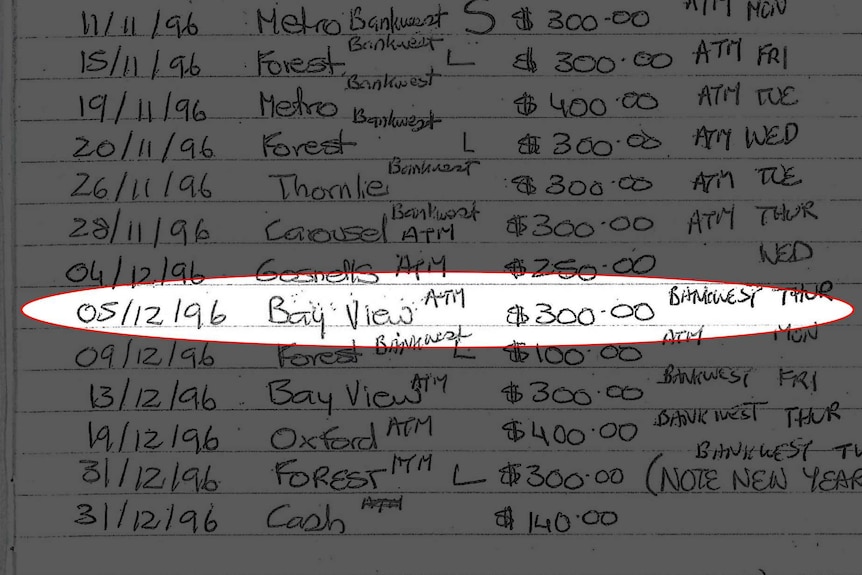 11/11/96 Metro Bankwest S $300.00 ATM MON
15/11/96 Forest Bankwest L $300.00 ATM FRI
19/11/96 Metro Bankwest $400.00 ATM TUE
20/11/96 Forest Bankwest L $300.00 ATM WED
26/11/96 Thornlie Bankwest $300.00 ATM TUE
28/11/96 Carousel Bankwest ATM $300.00 ATM THUR
04/12/96 Gosnells ATM $250.00 WED
05/12/96 Bay View ATM $300.00 BANKWEST THUR
09/12/96 Forest Bankwest L $100.00 ATM MON
13/12/96 Bay View ATM $300.00 BANKWEST FRI
19/12/96 Oxford ATM $400.00 BANKWEST THUR
31/12/96 FOREST ATM L $300.00 BANKWEST (NOTE NEW YEAR
31/12/96 Cash ATM $140.00